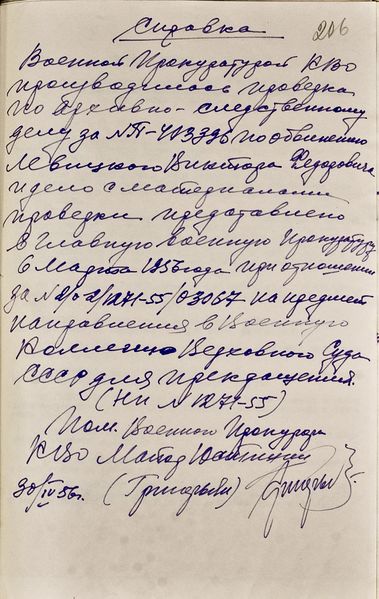 Справка
206
Военной Прокуратурой КВО
производилась проверка
по архивно-следственному
делу за №П-413396 по обвинению
Левицкого Виктора Федоровича
и дело с материалами
проверки представлено
в Главную военную Прокуратуру
6 Марта 1956 года при отношении
за №2/02/1271-55/03067 на предмет
направления в Военную
Коллегию Верховного Суда
СССР для прекращения.
(НП №1271-55)
Пом. Военного Прокурора
КВО Майор Юстиции
30/IV 56г.